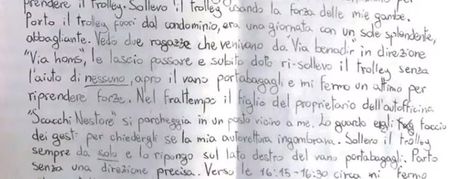 prendere il trolley. Sollevo il trolley usando la forza delle mie gambe.
Porto il trolley fuori dal condominio, era una giornata con un sole splendente,
abbagliante. Vedo due ragazze che venivano da Via benadir in direzione
"Via hons", le lascio passare e subito dopo ri-sollevo il trolley senza
l'aiuto di nessuno, apro il vano portabagagli e mi fermo un attimo per
riprendere forze. Nel frattempo il figlio del proprietario dell'autofficina
"Scacchi Nestore" si parcheggia in un posto vicino a me. Lo guardo e gli faccio
dei gesti per chiedergli se la mia autovettura ingombrava. Sollevo il trolley
sempre da solo e lo ripongo sul lato destro del vano portabagagli. Parto
senza una direzione precisa. Verso le 16:15-16:30 circa mi fermo